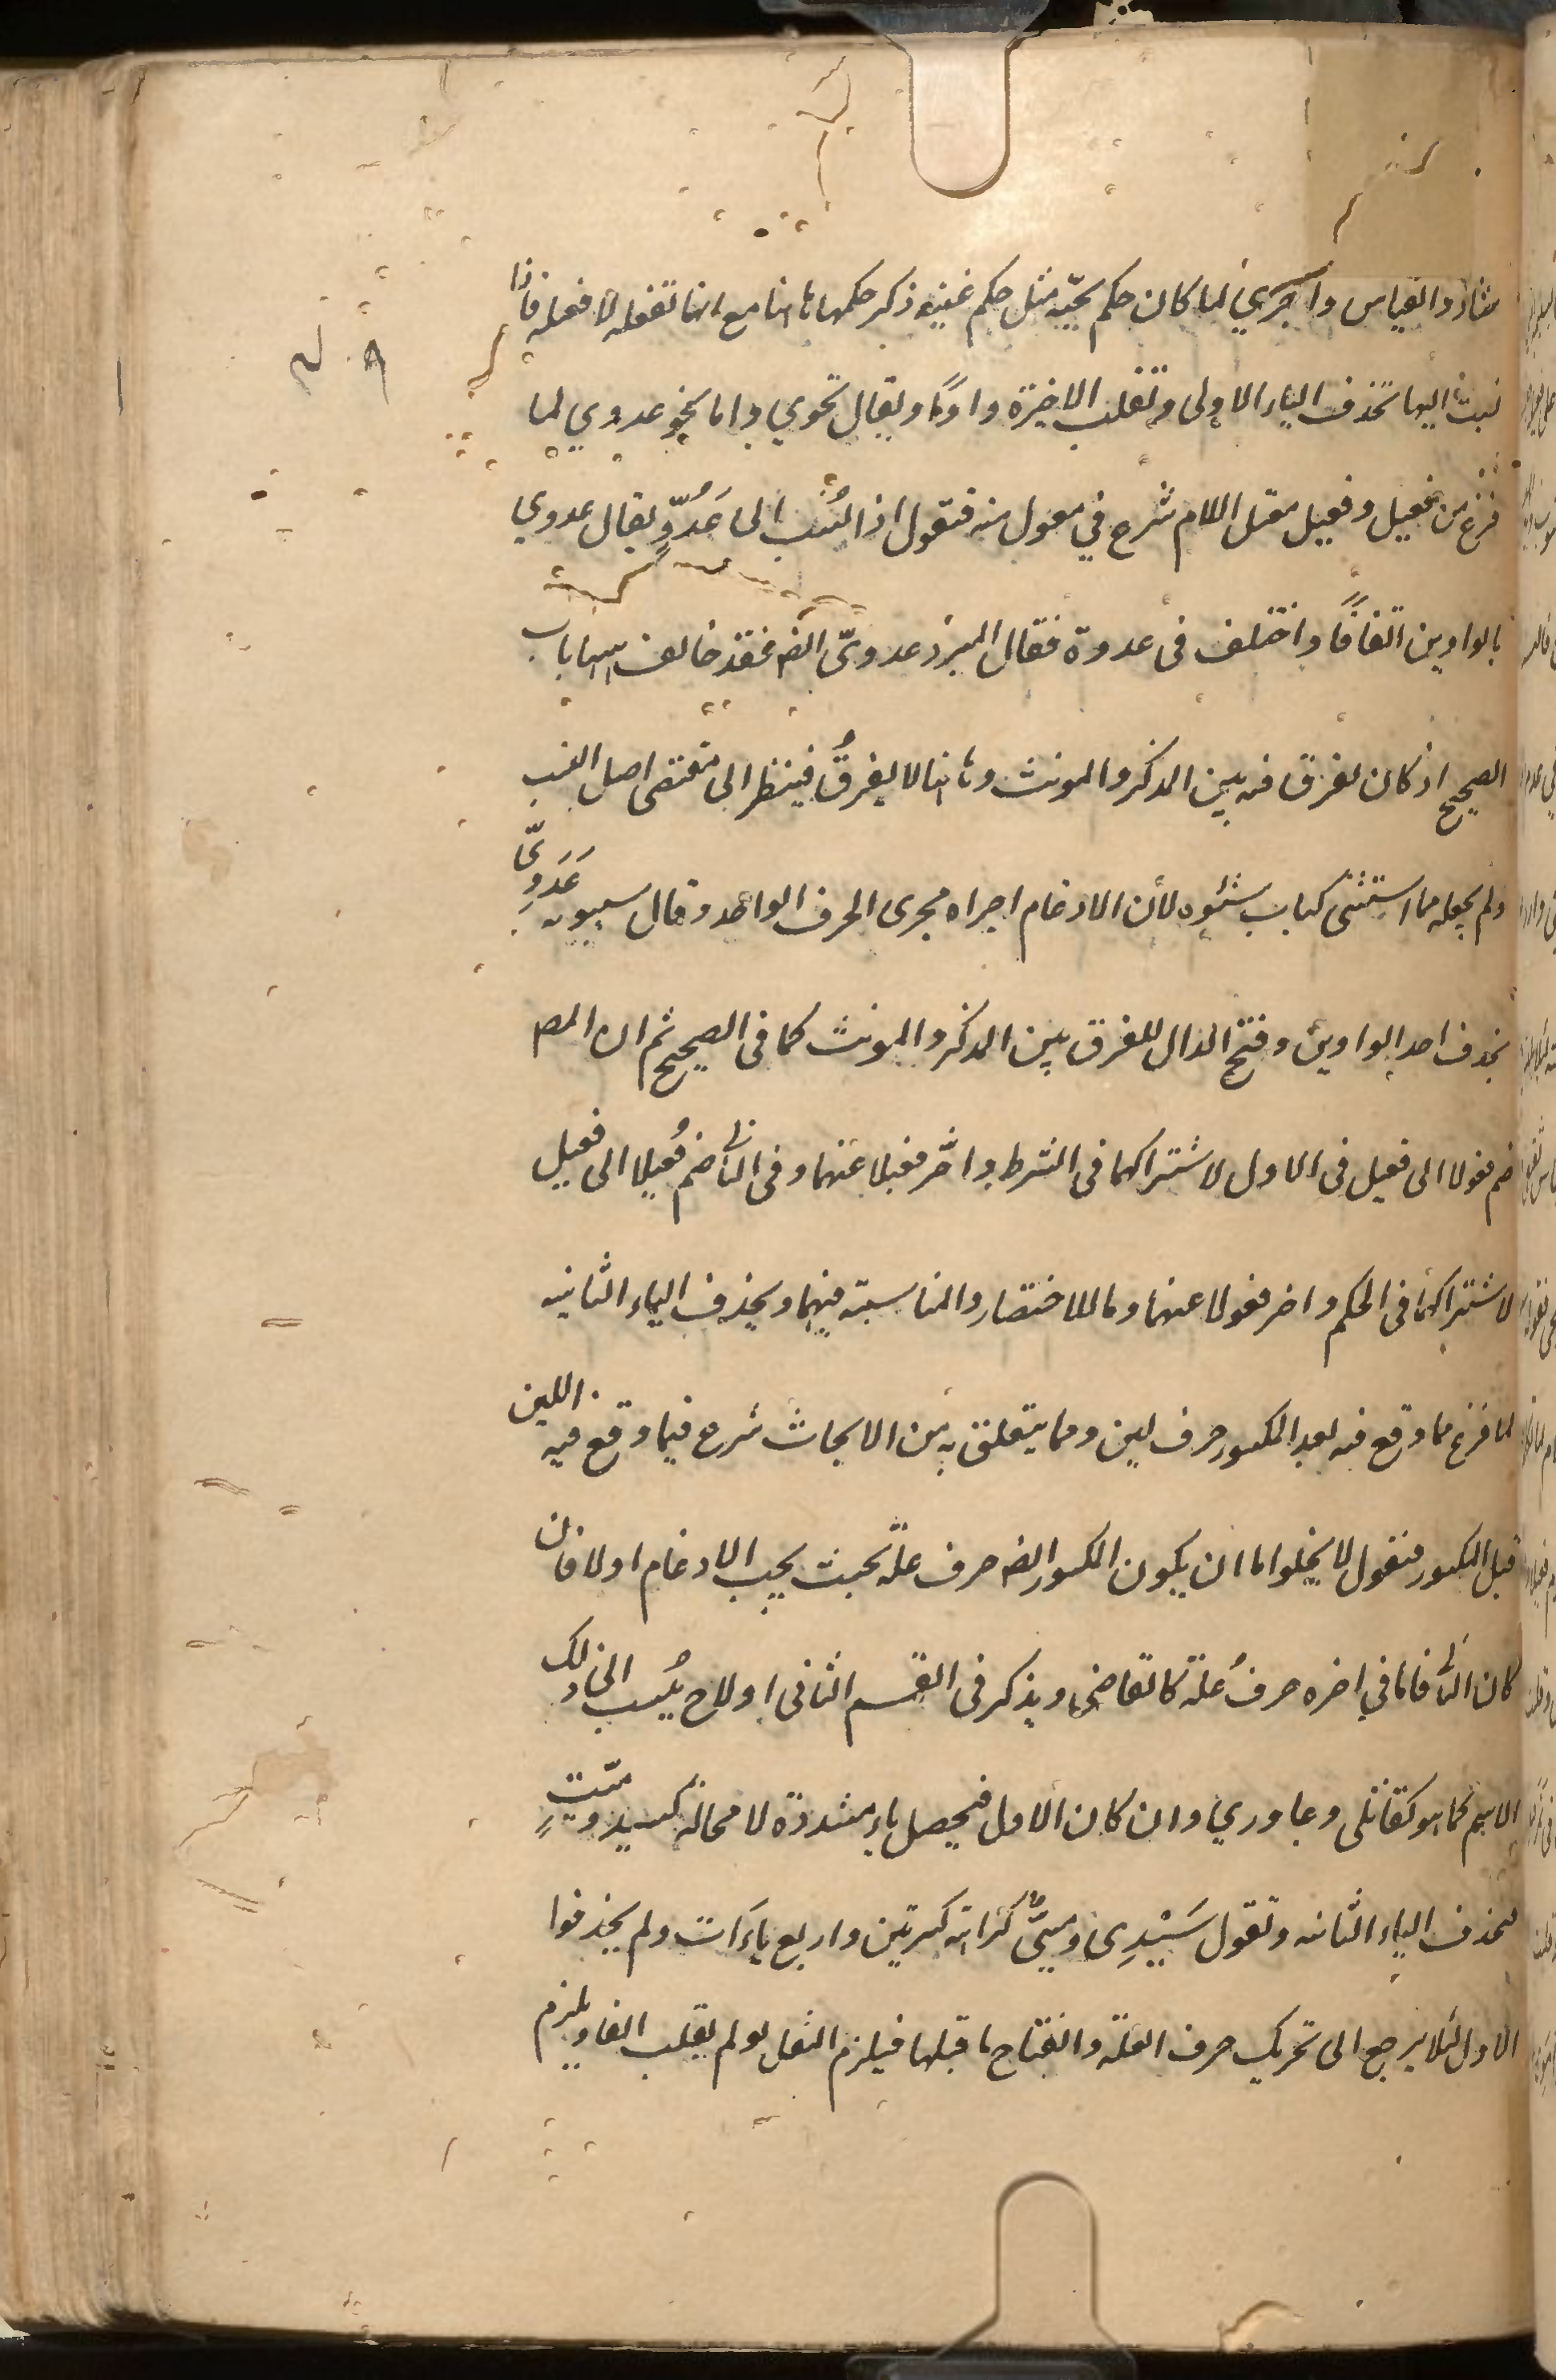 شاذ والقياس واجري لما كان حكم تحيّة مثل حكم غنية ذكر حكمها هاهنا مع انها تفعلة لا فعيلة فاذا
نسبت اليها تحذف الياء الاولى وتقلب الاخيرة واوًا ويقال تحوي واما نحو عدوي لما
فرغ من فعيل وفعيل معتل اللام شرع في فعول منه فتقول اذا نُسب الى عَدُوٍّ يقال عدوي
بالواوين اتفاقًا واختلف فى عدوة فقال المبرد عدويّ ايضه فقد خالف ههنا باب
الصحيح اذ كان يفرق فيه بين المذكر والمونث وهاهنا لا يفرقُ فينظر الى مقتضى اصل النسب
ولم يجعله مما استثنى كباب شنوه لأن الادغام اجراه مجرى الحرف الواحد وقال سيبويه عَدَوِيّ
بحذف احد الواوين وفتح الدال للفرق بين المذكر والمونث كما فى الصحيح ثم ان المص
ضم فعولا الى فعيل فى الاول لاشتراكهما فى الشرط واخّر فعيلا عنهما وفى الثاني ضم فُعيلا الى فعيل
لاشتراكهما فى الحكم واخر فعولا عنهما وما للاختصار والمناسبة فيهما ويحذف الياء الثانيه
لما فرغ مما وقع فيه بعد المكسور حرف لين ومما يتعلق به من الابحاث شرع فيما وقع فيه اللين
قبل المكسور فنقول لا يخلوا اما ان يكون المكسور ايضه حرف علّة بحيث يجب الادغام اولا فان
كان الثاني فاما في اخره حرفُ علّة كالقاضى ويذكر فى القسم الثانى اولا ح يُنسب الى ذلك
الاسم كما هو كقاتلى وعاوري وان كان الاول فيحصل ياء مشددة لا محالة كسيد وميّتٍ
فتحذف الياء الثانيه وتقول سَيْدِى وميتىّ كراهة كسرتين واربع ياءَات ولم يحذفوا
الاول لئلا يرجع الى تحريك حرف العلّة وانفتاح ما قبلها فيلزم الثقل لو لم يقلب الفا ويلزم